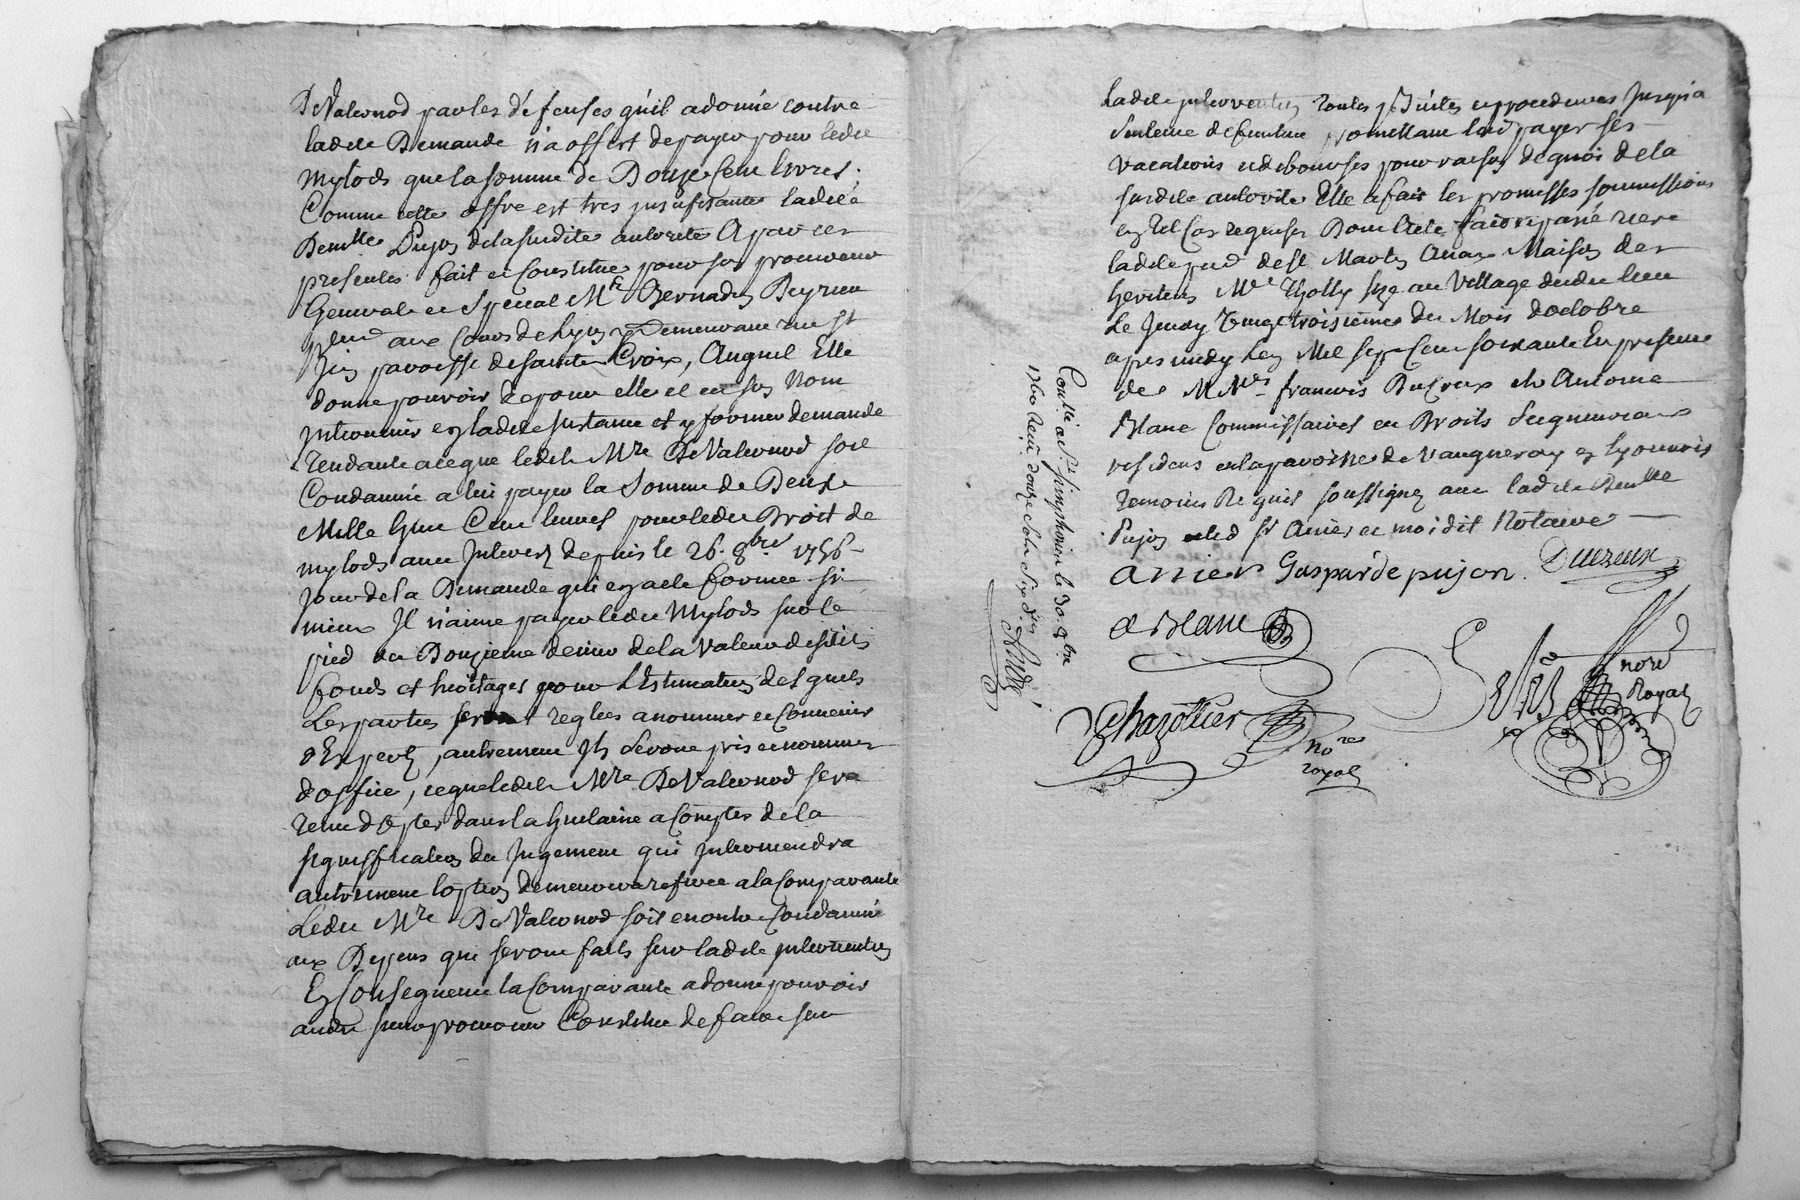 De Valernod par les défenses qu'il a donné contre
ladte Demande n'a offert de payer pour ledit
mylods que la somme de Douze Cent livres,
Comme cette offre est tres insufisante ladite
Demlle Pujon de la susdite autorité A par ces
presentes fait et Constitué pour son procureur
General et Special Me Bernadin Peyrieu
pleur aux Cours de Lyon y Demeurant rue st
Jean paroisse de sainte Croix, Auquel Elle
donne pouvoir de pour elle et en son Nom
Intervenir en ladte Instance et y former demande
Tendante a ce que ledit Mre De Valernod soit
Condamné a lui payer la Somme de Deux
Mille Cent livres pour ledit Droit de
mylods avec Interest depuis le 26. 8bre 1756
jour de la Demande qui en a eté formée si
mieux Il n'aime payer ledit Mylods sur le
pied du Douzieme denier de la Valeur desdits
fonds et heritages pour l'Estimation desquels
Les parties seront reglées a nommer et Convenir
d'Experts, autrement Ils seront pris et nommés
d'office, ce que ledit Mre De Valernod sera
tenu d'opter dans la huitaine a Compter de la
signiffication du Jugement qui Interviendra
autrement l'option demeurera referée a la Comparante
Ledit Mre De Valernod soit en outre Condamné
aux Depens qui seront faits sur ladte Intervention
En Consequence la Comparante a donné pouvoir
audit sieur procureur Constitué de faire sur
ladte Intervention toutes poursuites et procedures Jusqu'a
Sentence definitive promettant lui payer ses
vacations et debourses pour raison de quoi de la
susdite autorité Elle a fait les promesses soumissions
en tel Cas requises Dont Acte fait et passé riere
ladte par de St Martin Annax Maison des
heritiers Mre Tholly size au Village dudit lieu
Le Jeudy Vingt troisieme du Mois d'octobre
apres midy L'an Mil sept Cent soixante En presence
de MMes francois Duzeux et Antoine
Blanc Commissaires en Droits Seigneuriaux
residens en la paroisse de Vaugneray en Lyonnois
temoins Requis soussignez avec ladite Demlle
Pujon ledt sr Arnier et moi dit Notaire
Arnier Gasparde pujon. Duzeux
A Blanc
Chazottier
nore
royal
nore
Royal
Conllé a St. simphorien le 30. 8bre
1760 Reçu douze sols six drs